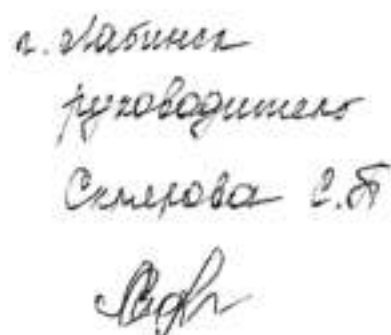 г. Лабинск
руководитель
Склярова С.П